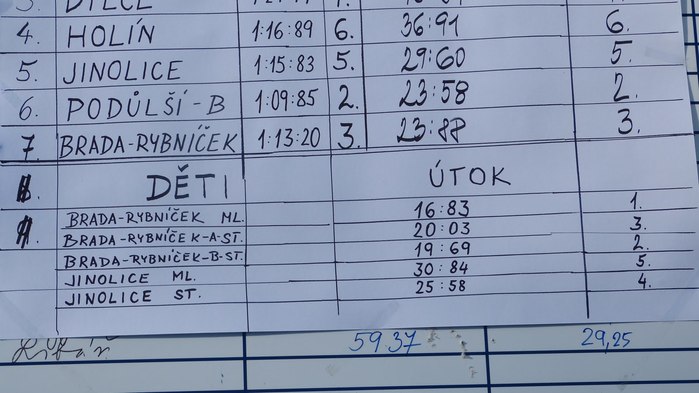 DÍLCE
4. HOLÍN 1:16:89 6. 36:91 6.
5. JINOLICE 1:15:83 5. 29:60 5.
6. PODŮLŠÍ-B 1:09:85 2. 23:58 2.
7. BRADA-RYBNÍČEK 1:13:20 3. 23:88 3.
DĚTI ÚTOK
BRADA-RYBNÍČEK ML. 16:83 1.
BRADA-RYBNÍČEK-A-ST. 20:03 3.
BRADA-RYBNÍČEK-B-ST. 19:69 2.
JINOLICE ML. 30:84 5.
JINOLICE ST. 25:58 4.
59.37 29,25